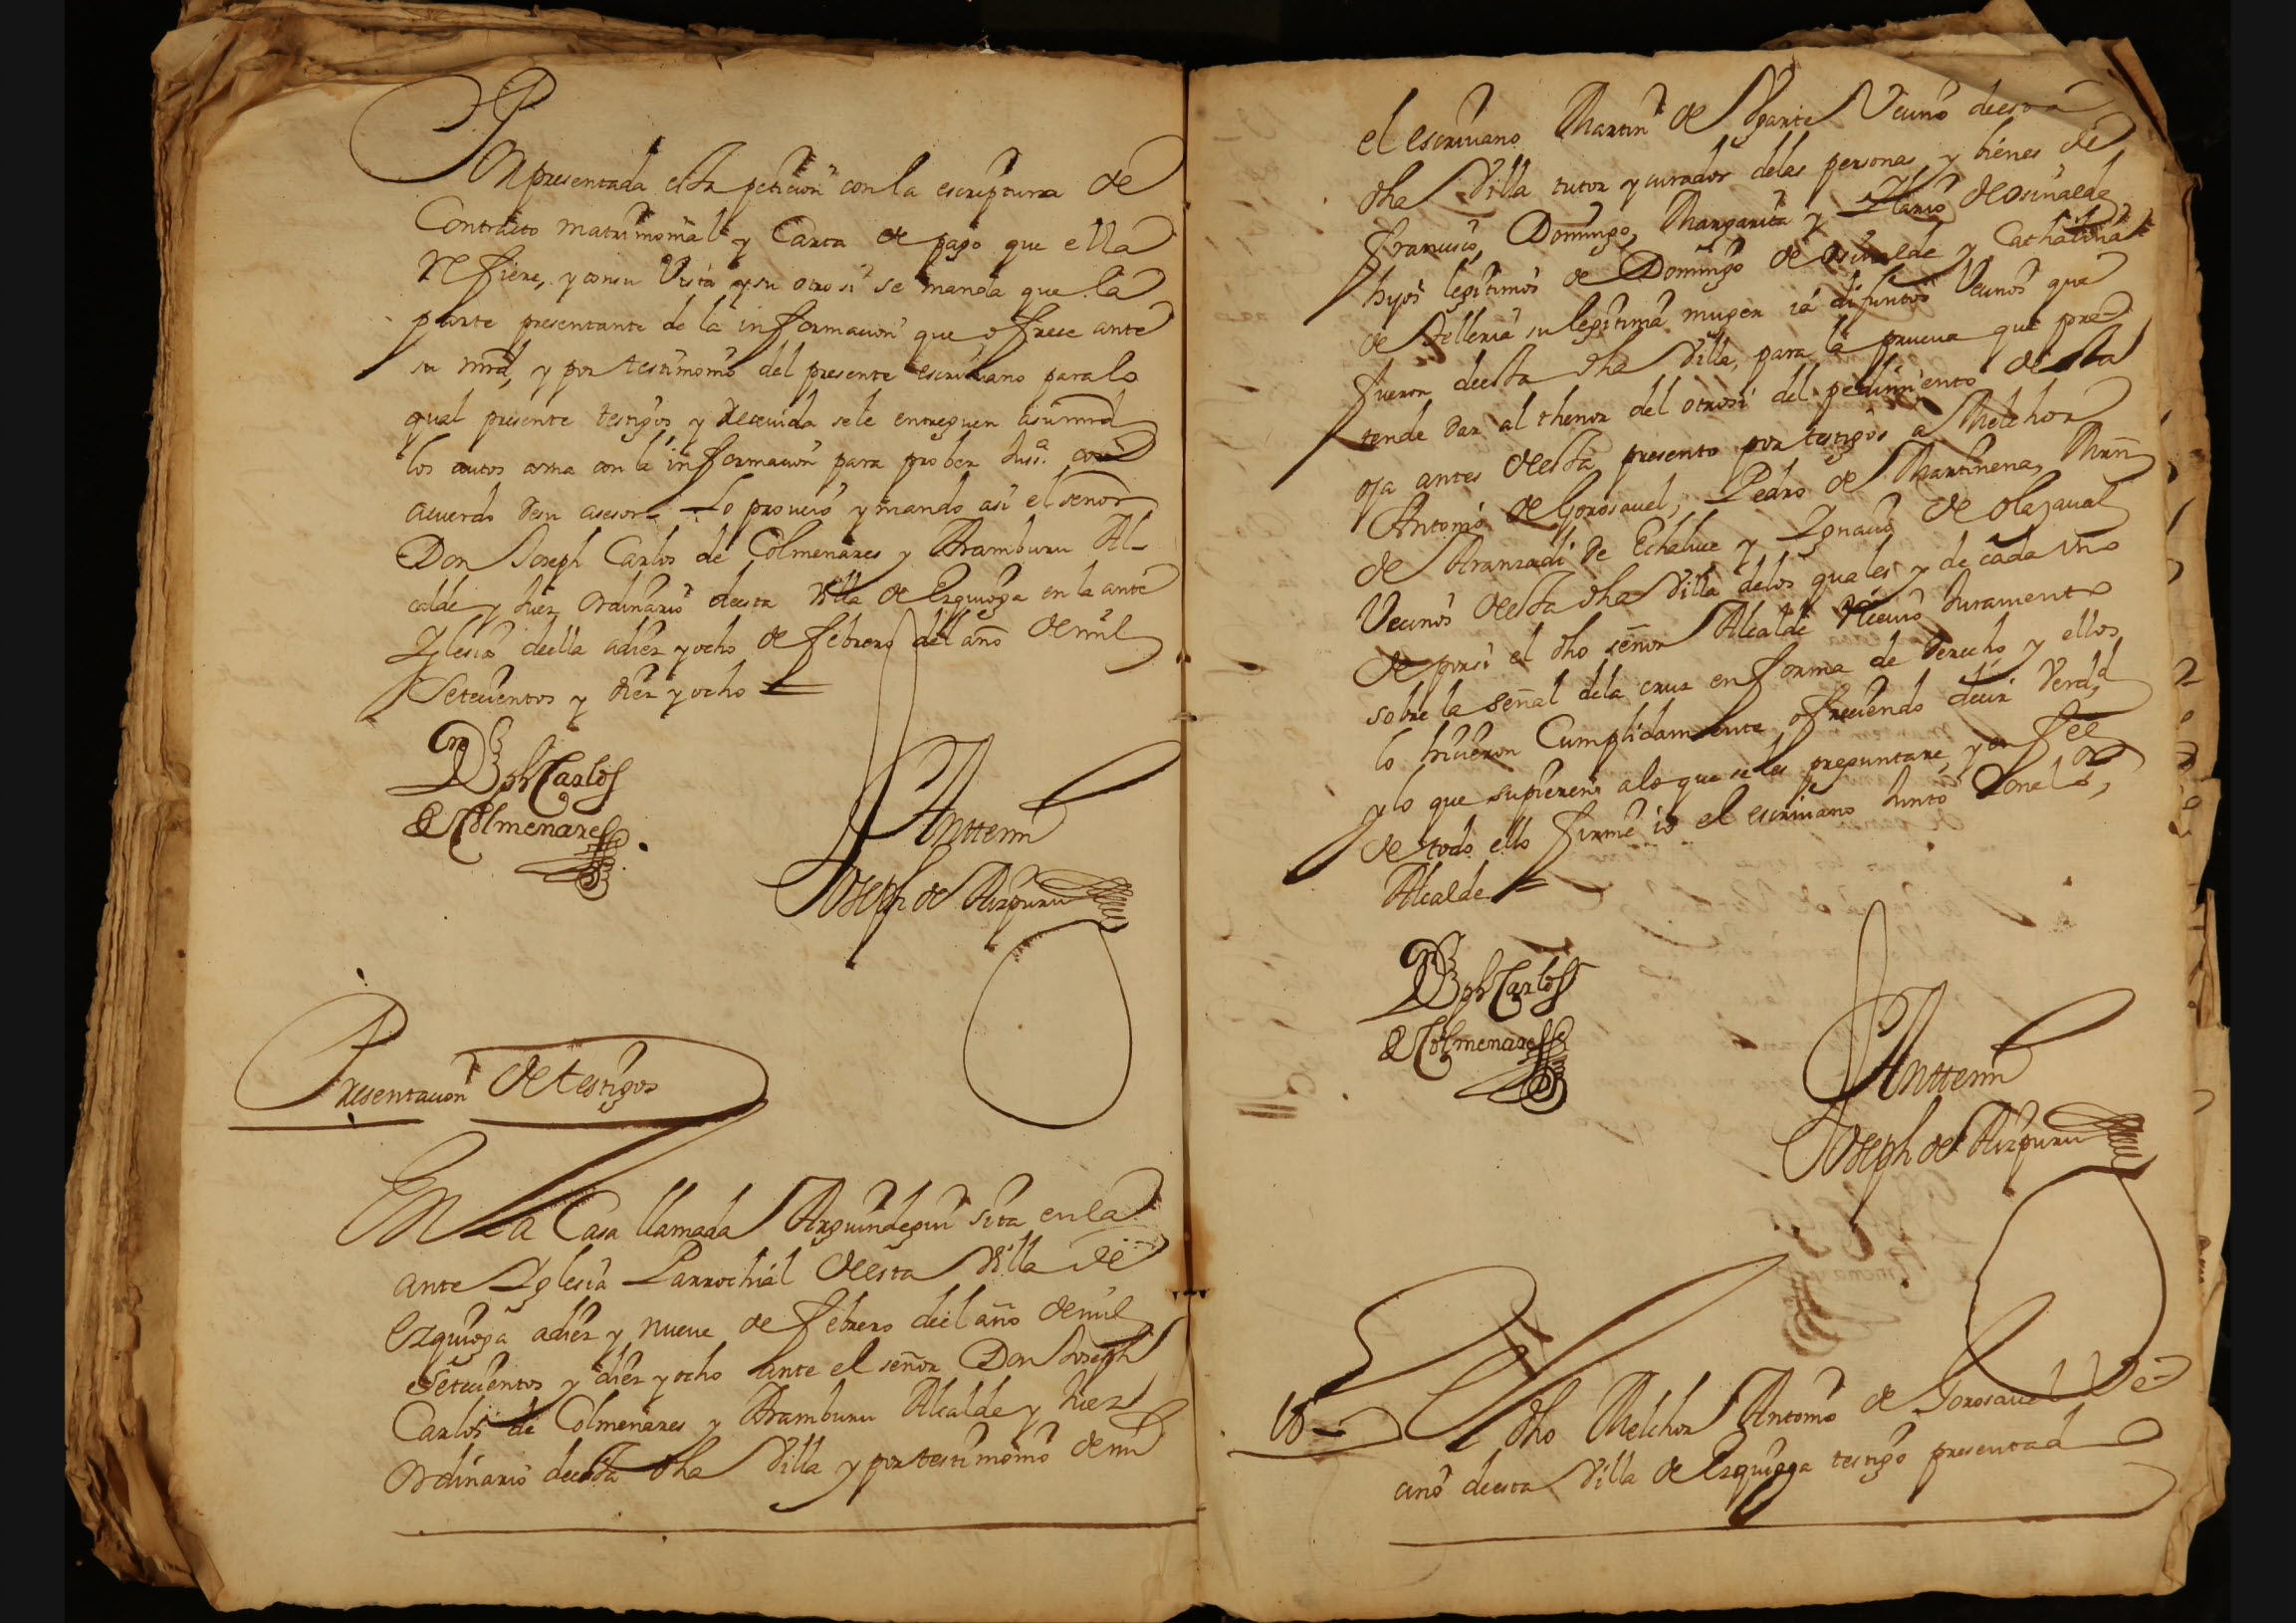 Por presentada esta peticion con la escriptura de
Contrato matrimonial y Carta de pago que ella
refiere, y con su Vista y su otro si se manda que la
parte presentante de la informacion que ofrece ante
su mrd, y por testimonio del presente escriuano para lo
qual presente testigos y Receuida se le entreguen a su mrd
los autos con la informacion para prober Juss.a con
acuerdo de su asesor. Lo proueio y mando asi el señor
Don Joseph Carlos de Colmenares y Aramburu Al-
calde y Juez Ordinario deesta Villa de Ezquioga en la ante
Iglesia deella a diez y ocho de febrero del año de mil
Setecientos y diez y ocho
Dn Jph Carlos
de Colmenares
Ante mi
Joseph de Aizpuru
Presentacion de testigos
En la Casa llamada Arguindegui sita en la
ante Iglesia Parrochial deesta Villa de
Ezquioga a diez y nueue de febrero del año de mil
Setecientos y diez y ocho ante el señor Don Joseph
Carlos de Colmenares y Aramburu Alcalde y Juez
Ordinario deesta dha Villa y por testimonio de mi
el escriuano Martin de Ugarte Vecino deesta
dha Villa tutor y curador delas personas y bienes de
francisco, Domingo, Margarita y Ilario de Osinalde
hijos legitimos de Domingo de Osinalde y Cathalina
de Telleria su legitima muger ia difuntos Vecinos que
fueron deesta dha Villa, para la prueua que pre-
tende dar al thenor del otrosi del pedimiento de la
oja antes deesta presento por testigos a Melchor
Antonio de Gorosauel, Pedro de Martinena, Mrn
de Aranzadi de Echaluce y Ignacio de Olazaual
Vecinos deesta dha Villa delos quales y de cada uno
de porsi el dho señor Alcalde Reciuio Juramento
sobre la señal dela cruz en forma de derecho y ellos
lo hicieron Cumplidamente ofreciendo decir Verdd
y lo que supieren a lo que se les preguntare, y en fee
de todo ello firme io el escriuano Junto con el dho
Alcalde
Dn Jph Carlos
de Colmenares
Ante mi
Joseph de Aizpuru
El dho Melchor Antonio de Gorosauel Ve-
cino deesta Villa de Ezquioga testigo presentad